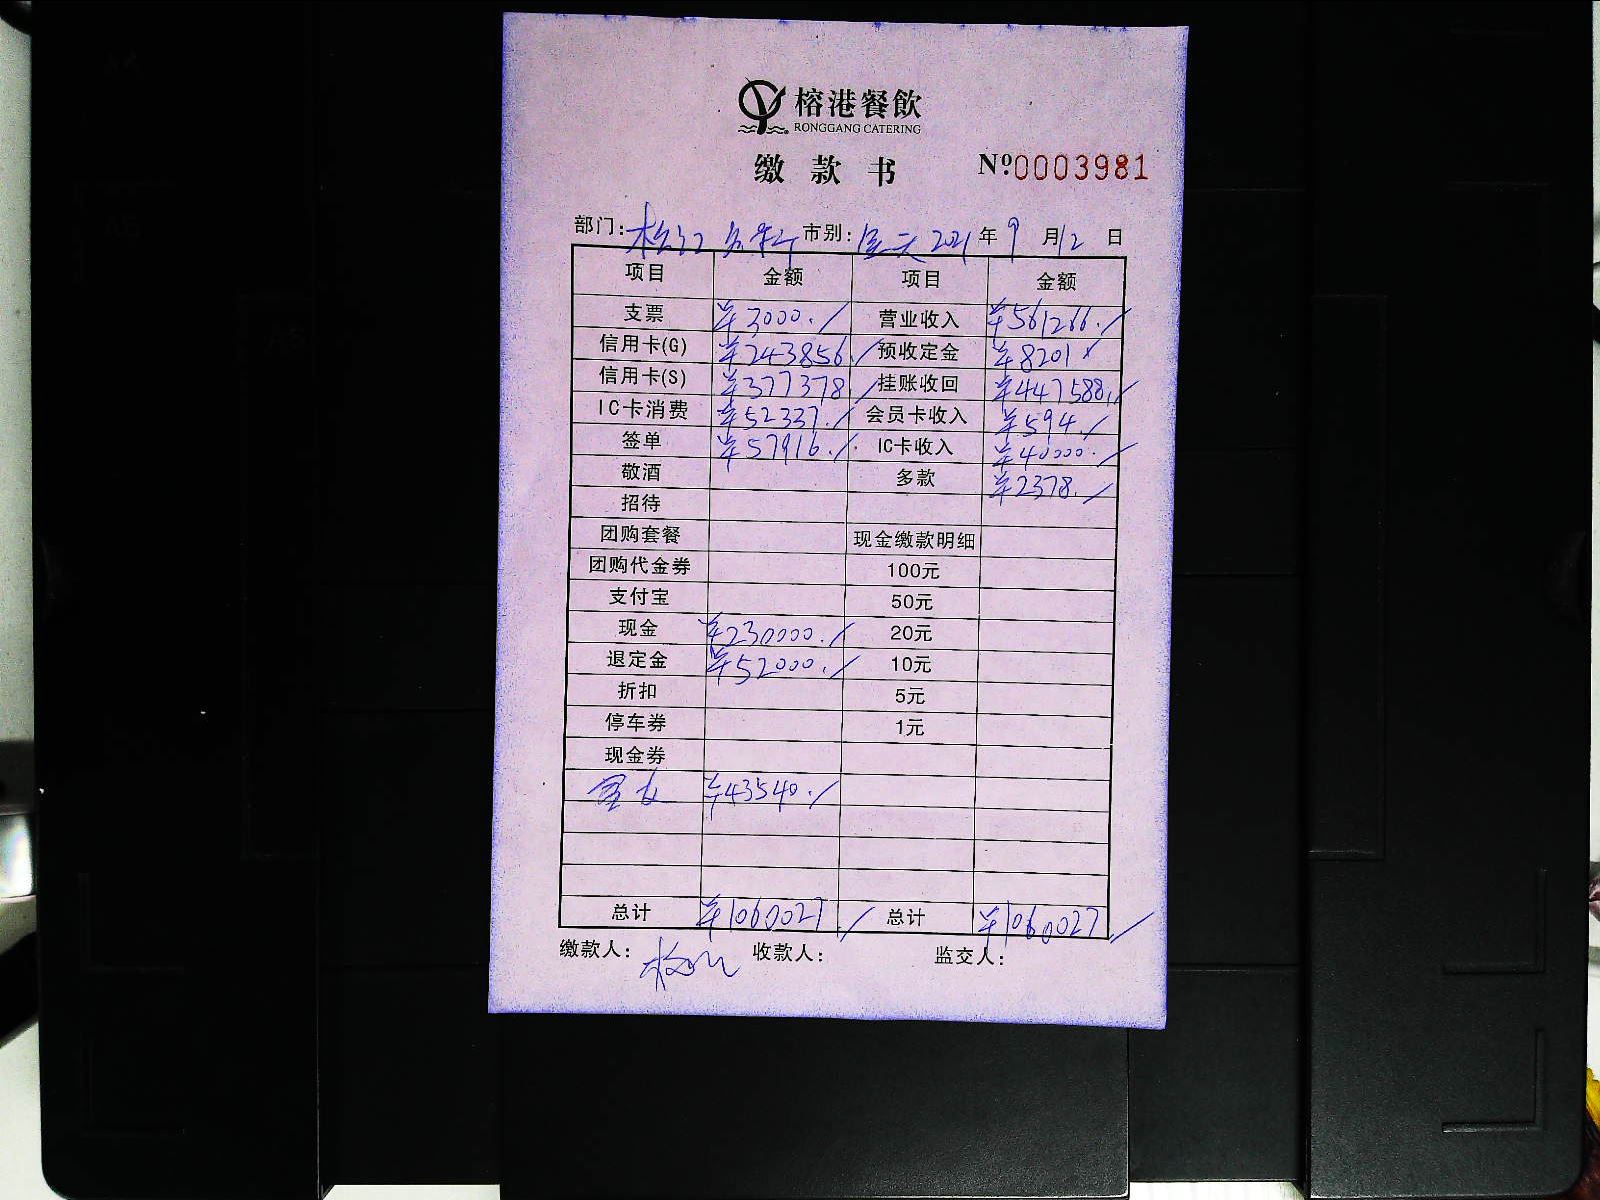 榕港餐飲
RONGGANG CATERING
缴款书 Nº:0003981
部门: 市别: 全天 2021年9月12日
项目 金额 项目 金额
支票 ¥3000. 营业收入 ¥561266.
信用卡(G) ¥243856. 预收定金 ¥8201
信用卡(S) ¥377378. 挂账收回 ¥447588.
IC卡消费 ¥52337. 会员卡收入 ¥594.
签单 ¥57916. IC卡收入 ¥40000.
敬酒 多款 ¥2378.
招待
团购套餐 现金缴款明细
团购代金券 100元
支付宝 50元
现金 ¥230000. 20元
退定金 ¥52000. 10元
折扣 5元
停车券 1元
现金券
¥43540.
总计 ¥1060027. 总计 ¥1060027.
缴款人: 收款人: 监交人: